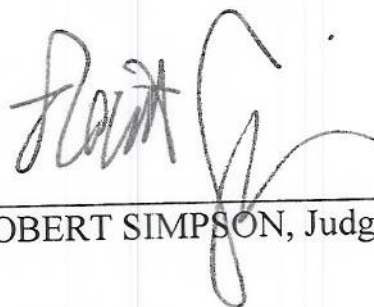 OBERT SIMPSON, Judg